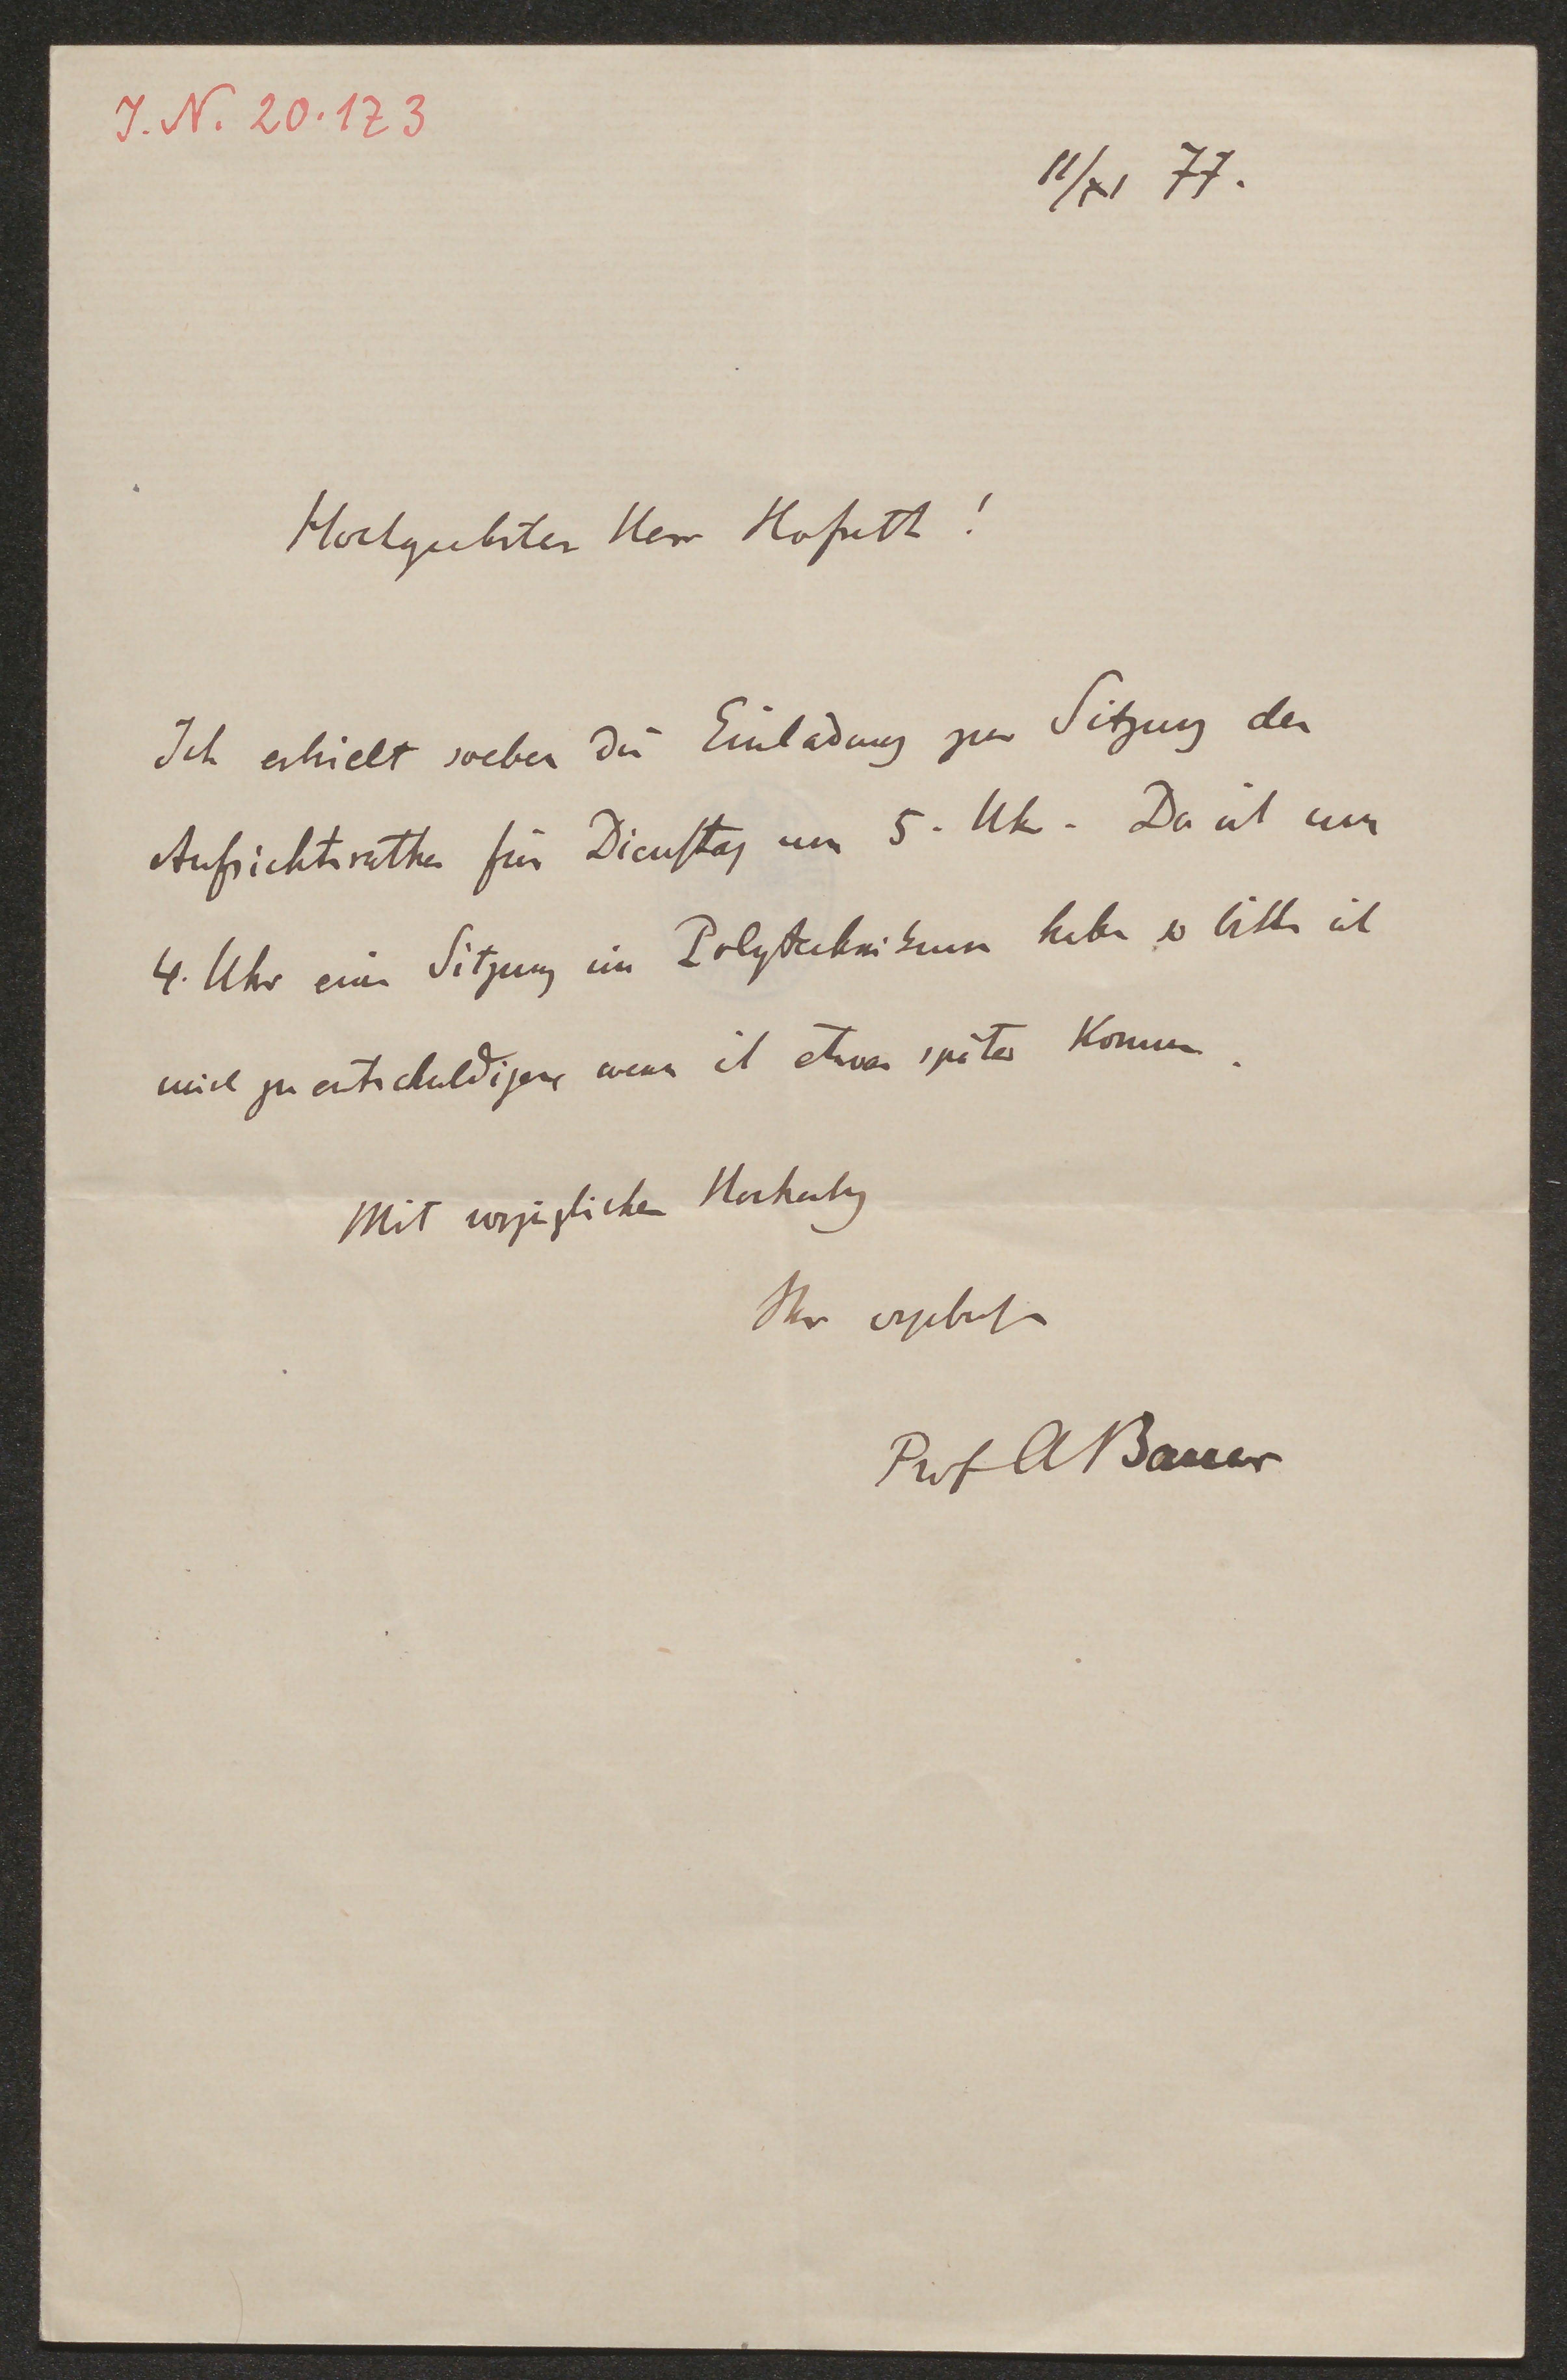 J. N. 20.173
11/XI 77.
Hochgeehrter Herr Hofrath!
Ich erhielt soeben die Einladung zur Sitzung des
Aufsichtsrathes für Dienstag um 5. Uhr. Da ich um
4. Uhr eine Sitzung im Polytechnikum habe so bitte ich
mich zu entschuldigen wenn ich etwas später komme.
Mit vorzüglicher Hochachtung
Ihr ergebenster
Prof A Bauer